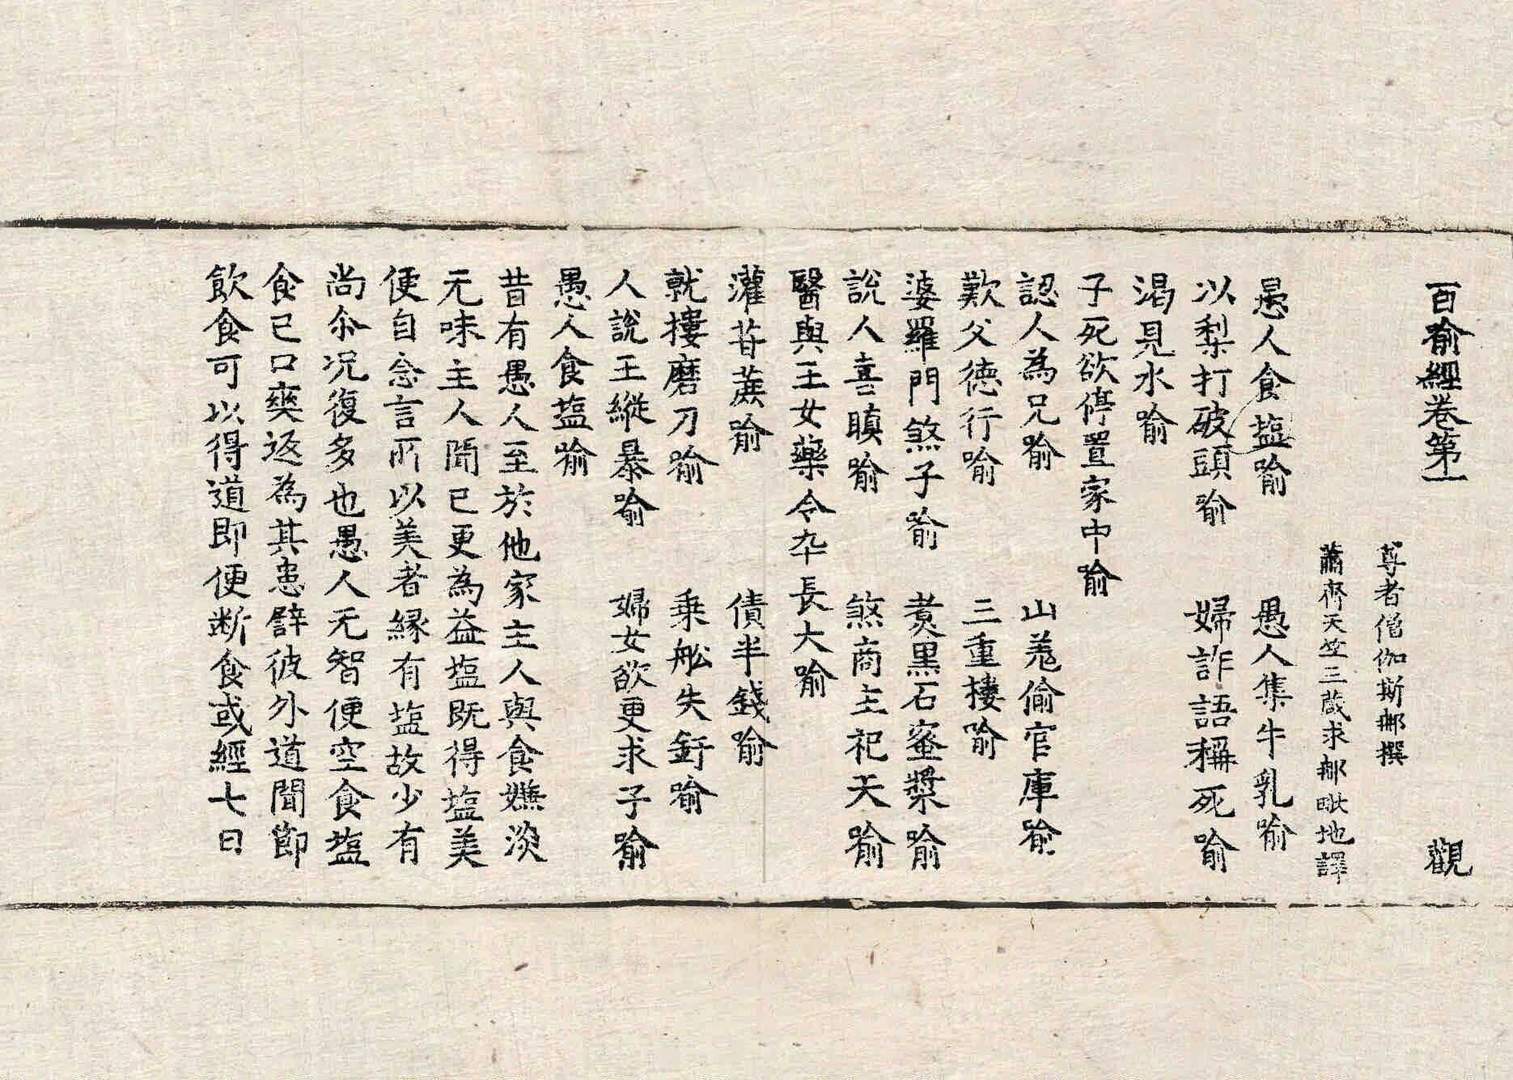 百喻經卷第一 觀
尊者僧伽斯那撰
蕭齊天竺三藏求那毗地譯
愚人食塩喻 愚人集牛乳喻
以梨打破頭喻 婦詐語稱死喻
渴見水喻
子死欲停置家中喻
認人為兄喻 山羌偷官庫喻
歎父德行喻 三重樓喻
婆羅門煞子喻 煑黑石蜜漿喻
說人喜瞋喻 煞商主祀天喻
醫與王女藥令卒長大喻
灌苷蔗喻 債半錢喻
就摟磨刀喻 乗舩失釪喻
人說王縱暴喻 婦女欲更求子喻
愚人食塩喻
昔有愚人至於他家主人與食嫌淡
无味主人聞已更為益塩既得塩美
便自念言所以美者緣有塩故少有
尚尒况復多也愚人无智便空食塩
食已口爽返為其患譬彼外道聞節
飲食可以得道即便断食或經七日